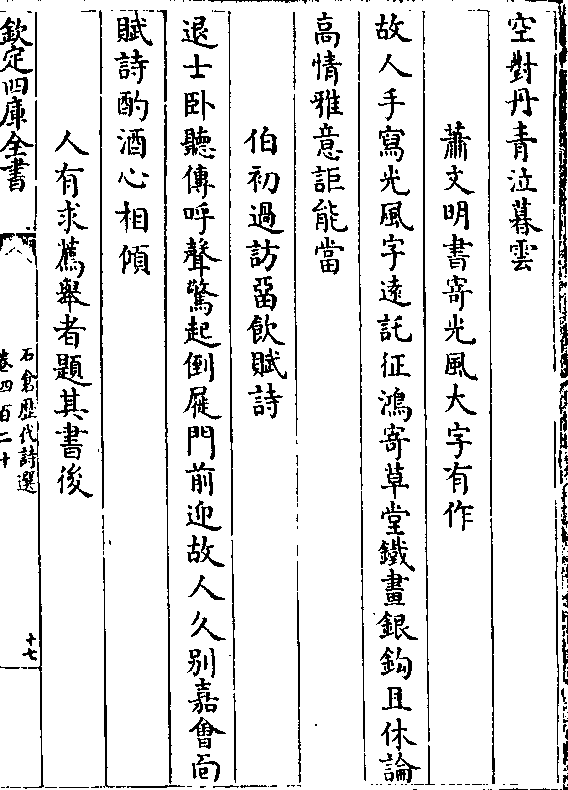 空對丹青泣暮雲
蕭文明書寄光風大字有作
故人手寫光風字逺託征鴻寄草堂鐵畫銀鈎且休論
高情雅意詎能當
伯初過訪留飲賦詩
退士卧聽傳呼聲驚起倒屣門前迎故人久别嘉會面
賦詩酌酒心相傾
人有求薦舉者題其書後
欽定四庫全書
石倉歴代詩選
卷四百二十
十七